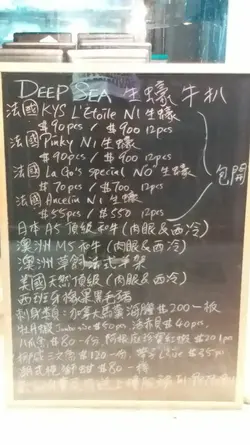 DEEP SEA 生蠔 牛扒
法國 KYS L'Étoile N1 生蠔
$90pcs / $900 12pcs
法國 Pinky N1 生蠔
$90pcs / $900 12pcs
法國 La Go's special NO 生蠔
$70pcs / $700 12pcs
法國 Ancelin N1 生蠔
$55pcs / $550 12pcs
包開
日本 A5 頂級和牛 (肉眼&西冷)
澳洲 M5 和牛 (肉眼&西冷)
澳洲草飼法式羊架
美國天然頂級 (肉眼&西冷)
西班牙橡果黑毛豬
刺身類: 加拿大馬糞海膽 $200一板
牡丹蝦 Jumbo size $50pcs 活赤貝 $40pcs
八爪魚 $80一份 阿根廷 紅蝦 $20 1pc
三文魚 $120一份 帶子 $25pc
$80一條